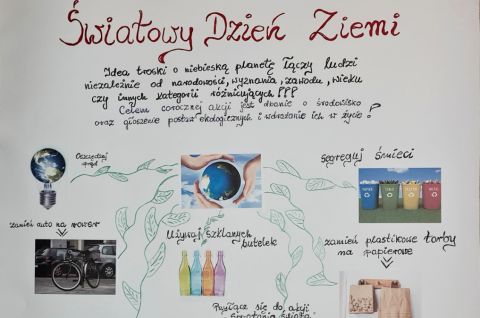 Światowy Dzień Ziemi
Idea troski o niebieską planetę łączy ludzi
niezależnie od narodowości, wyznania, zawodu, wieku
czy innych kategorii różnicujących???
Celem corocznej akcji jest dbanie o środowisko
oraz głoszenie postaw ekologicznych i wdrażanie ich w życie!
Oszczędzaj
prąd
segreguj śmieci
zamień auto na rower
Używaj szklanych
butelek
zamień plastikowe torby
na papierowe
Przyłącz się do akcji
"Sprzątania świata"